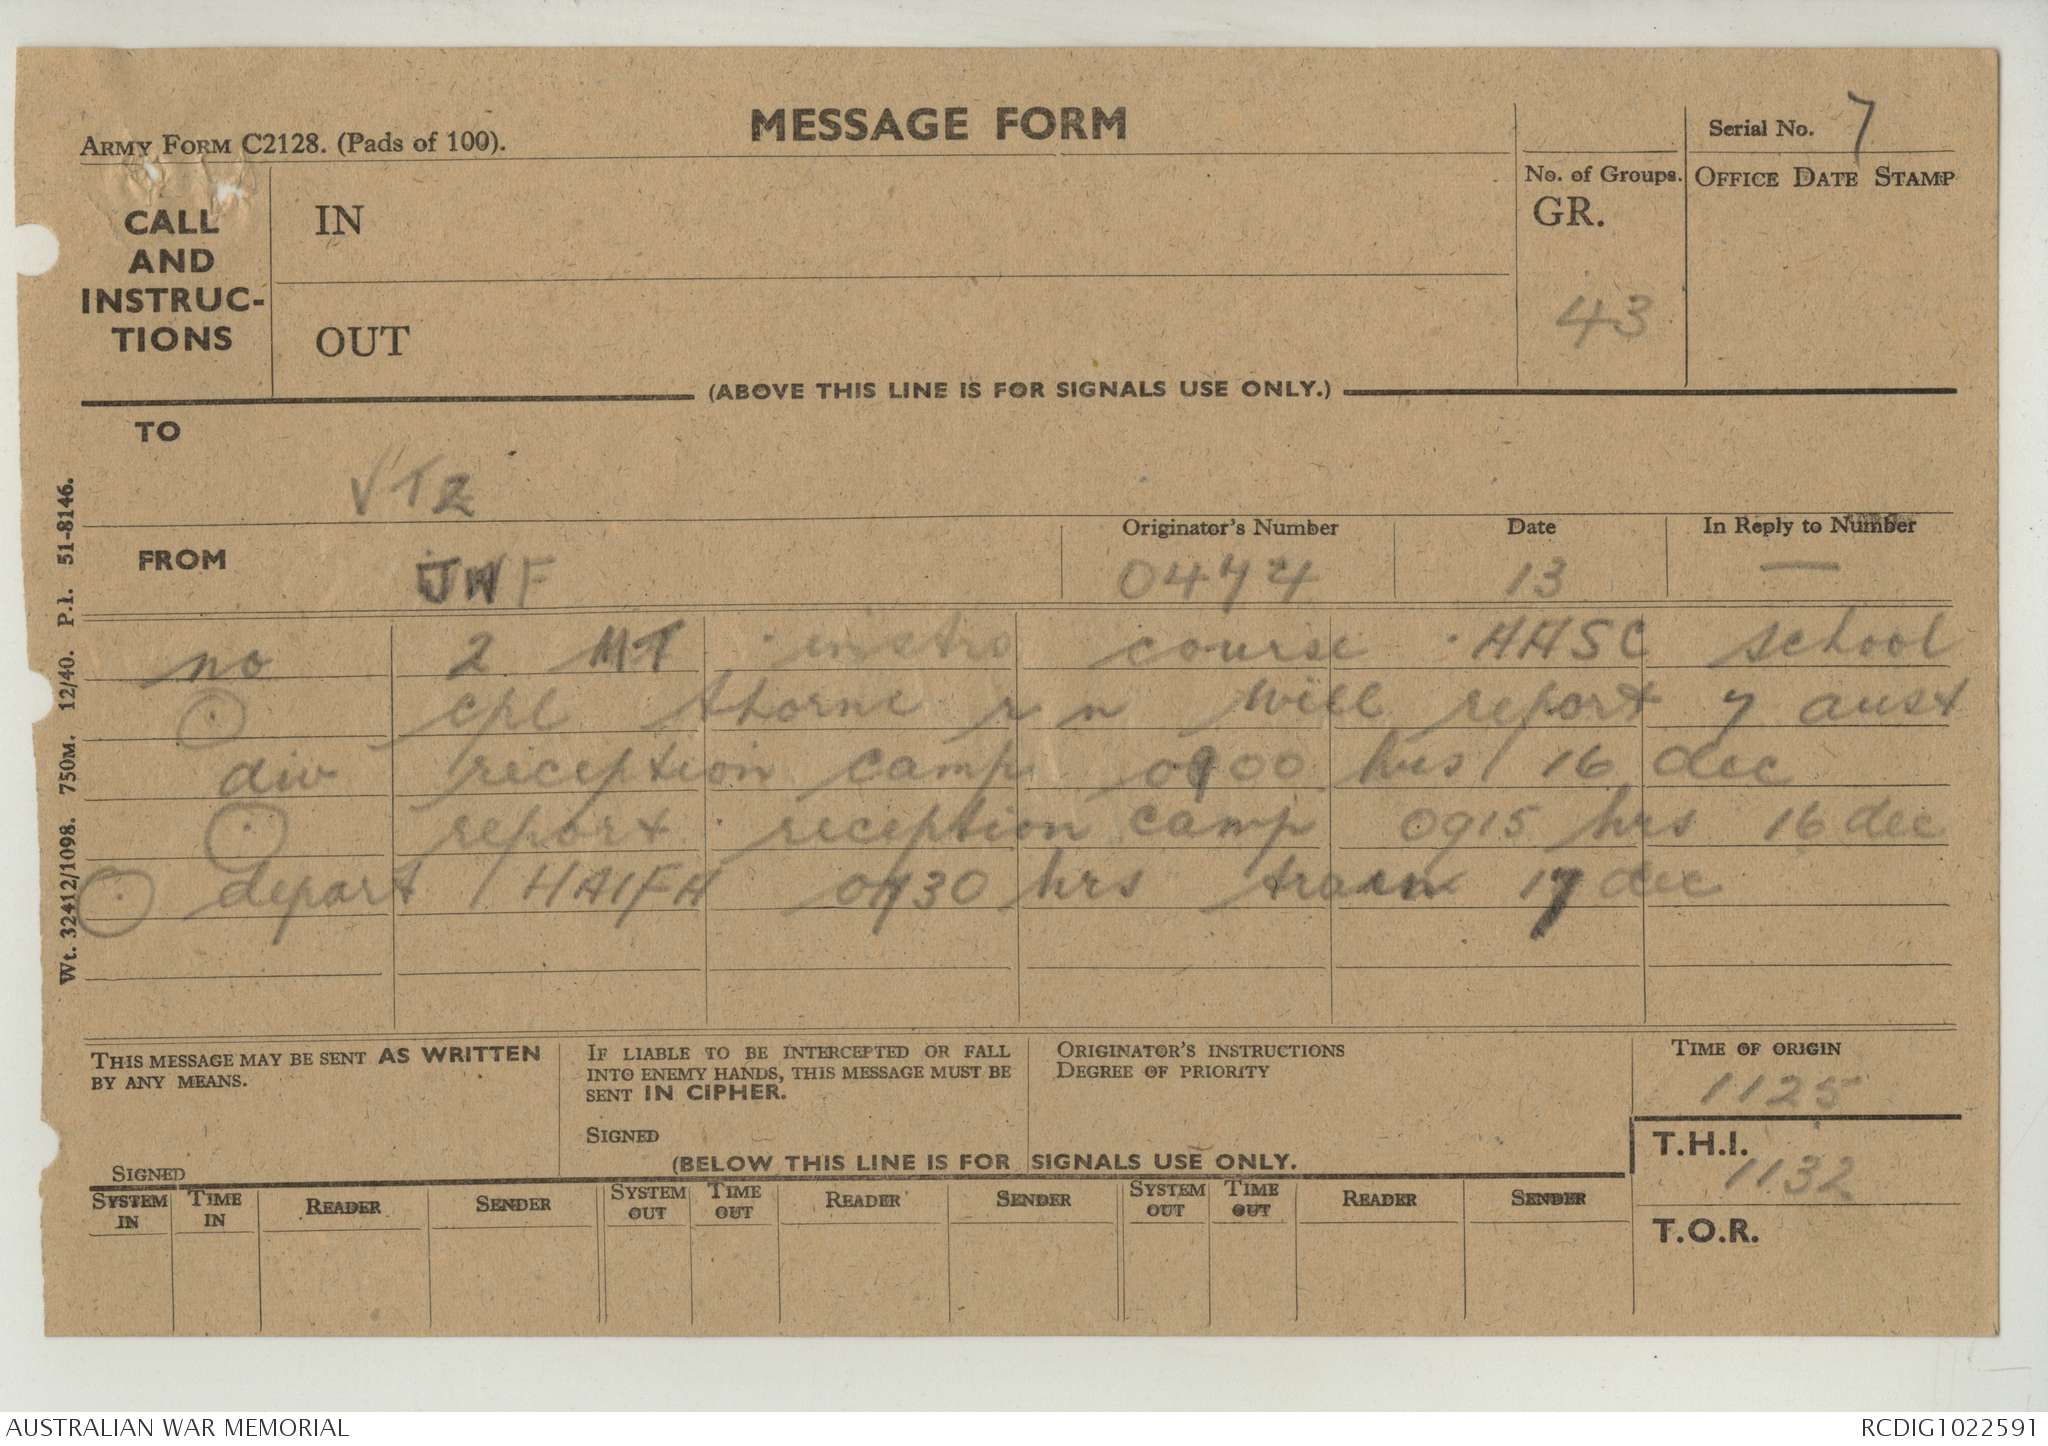 MESSAGE FORM
Army Form C2128. (Pads of 100).
Serial No. 7
CALL AND INSTRUC-TIONS
IN
OUT
No. of Groups.
GR.
43
OFFICE DATE STAMP
(ABOVE THIS LINE IS FOR SIGNALS USE ONLY.)
TO
VTZ
FROM
JWF
Originator's Number
0474
Date
13
In Reply to Number
—
no 2 MT instro course AASC school
cpl thorne r n will report 7 aust
div reception camp 0900 hrs 16 dec
report reception camp 0915 hrs 16 dec
depart HAIFA 0730 hrs train 17 dec
Wt. 32412/1098. 750M. 12/40. P.I. 51-8146.
THIS MESSAGE MAY BE SENT AS WRITTEN
BY ANY MEANS.
SIGNED
IF LIABLE TO BE INTERCEPTED OR FALL
INTO ENEMY HANDS, THIS MESSAGE MUST BE
SENT IN CIPHER.
SIGNED
ORIGINATOR'S INSTRUCTIONS
DEGREE OF PRIORITY
TIME OF ORIGIN
1125
T.H.I.
1132
T.O.R.
(BELOW THIS LINE IS FOR SIGNALS USE ONLY.
SYSTEM IN TIME IN READER SENDER SYSTEM OUT TIME OUT READER SENDER SYSTEM OUT TIME OUT READER SENDER
AUSTRALIAN WAR MEMORIAL
RCDIG1022591